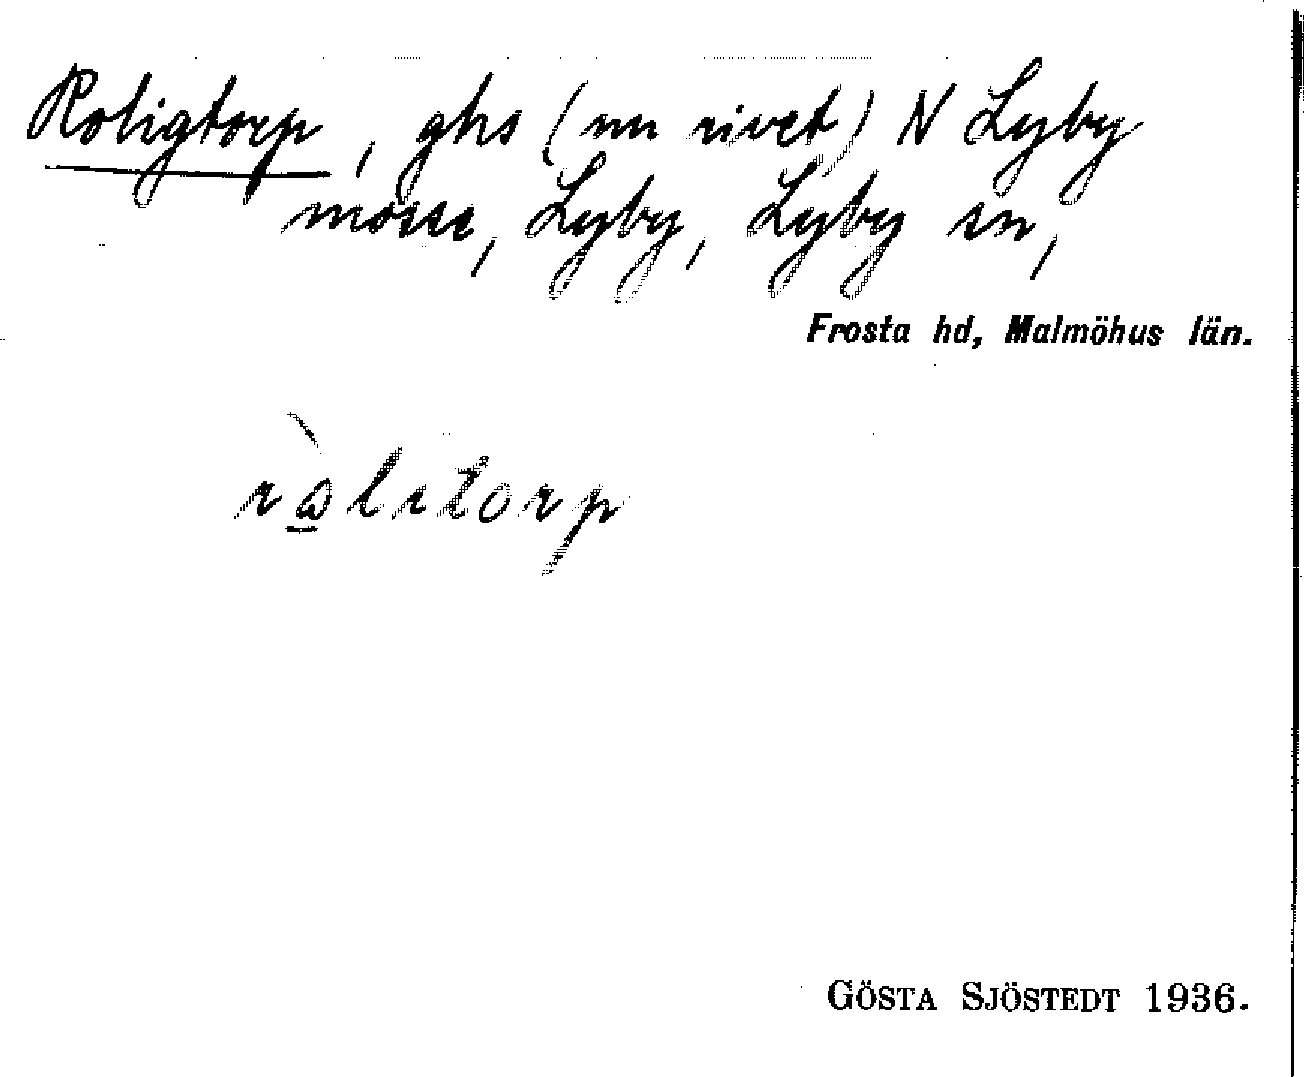 Roligtorp, ghs (nu rivet) N Lyby
mosse, Lyby, Lyby sn,
Frosta hd, Malmöhus län.
GÖSTA SJÖSTEDT 1936.